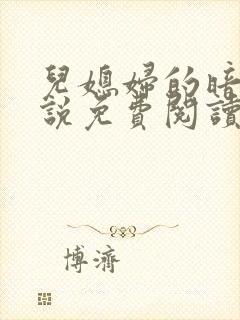 兒媳婦的暗
說免費閱讀
博濟